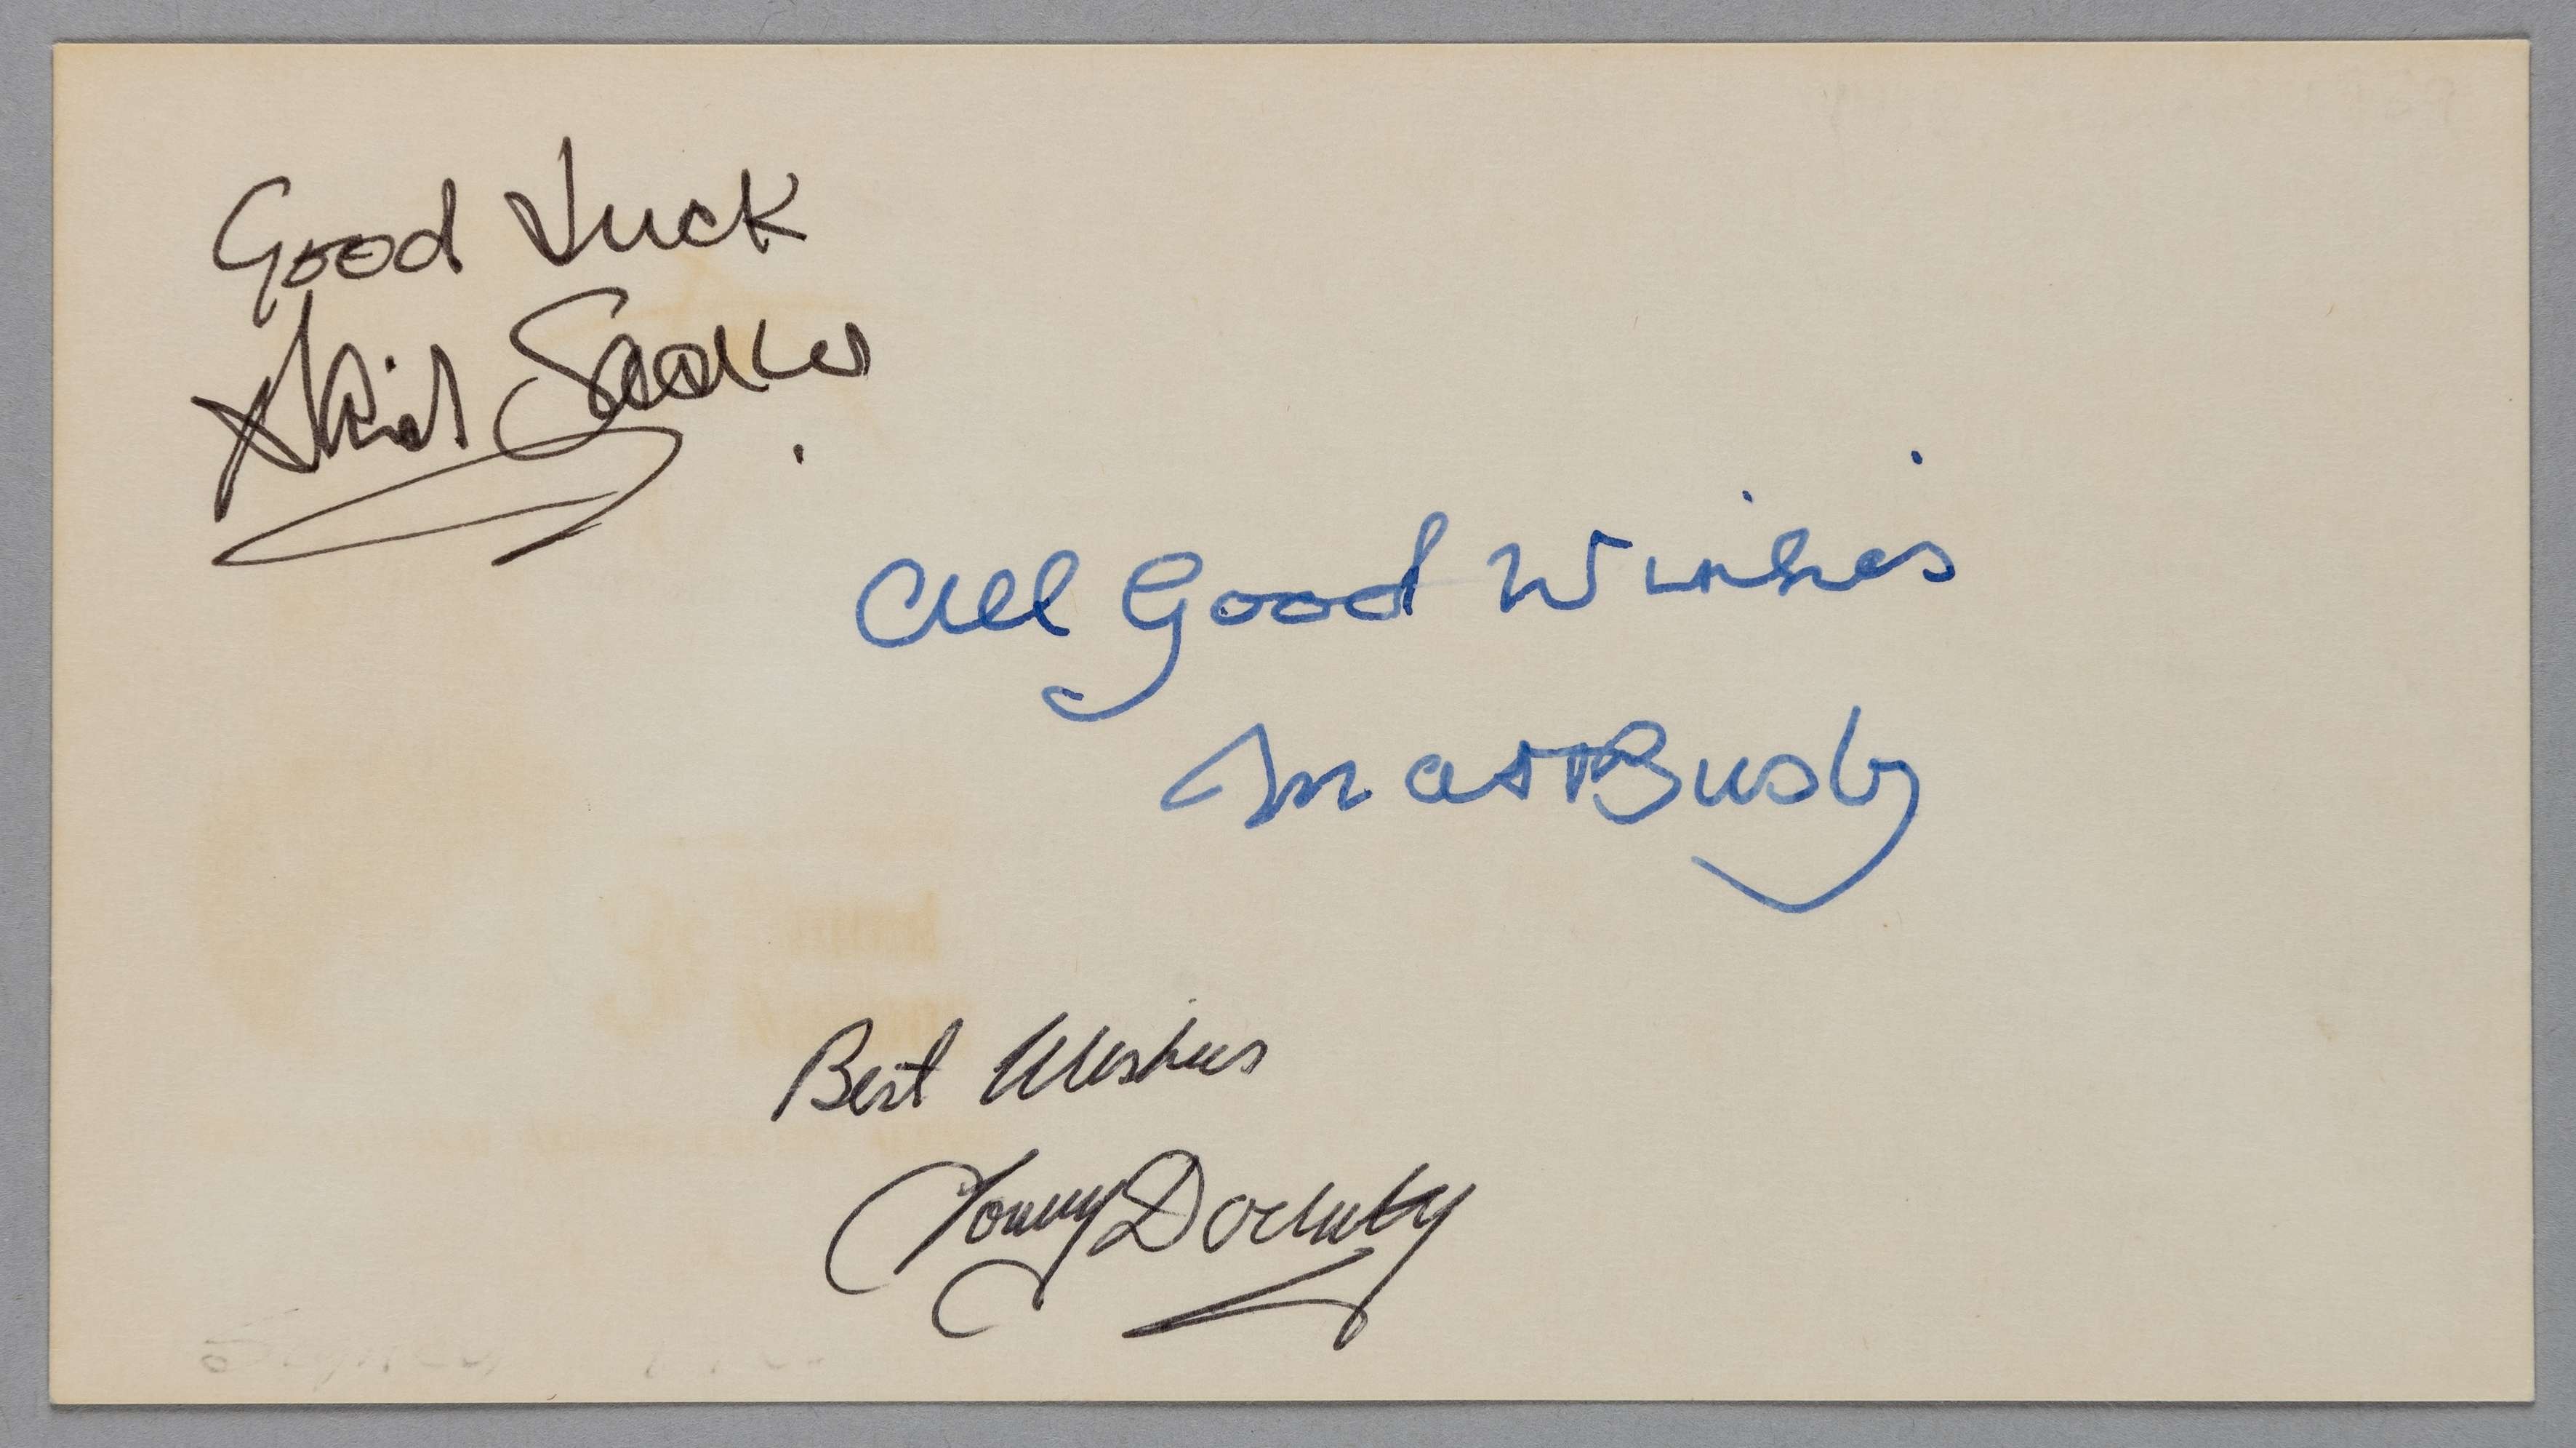 Good Luck
All Good Wishes
Matt Busby
Best Wishes
Tommy Docherty